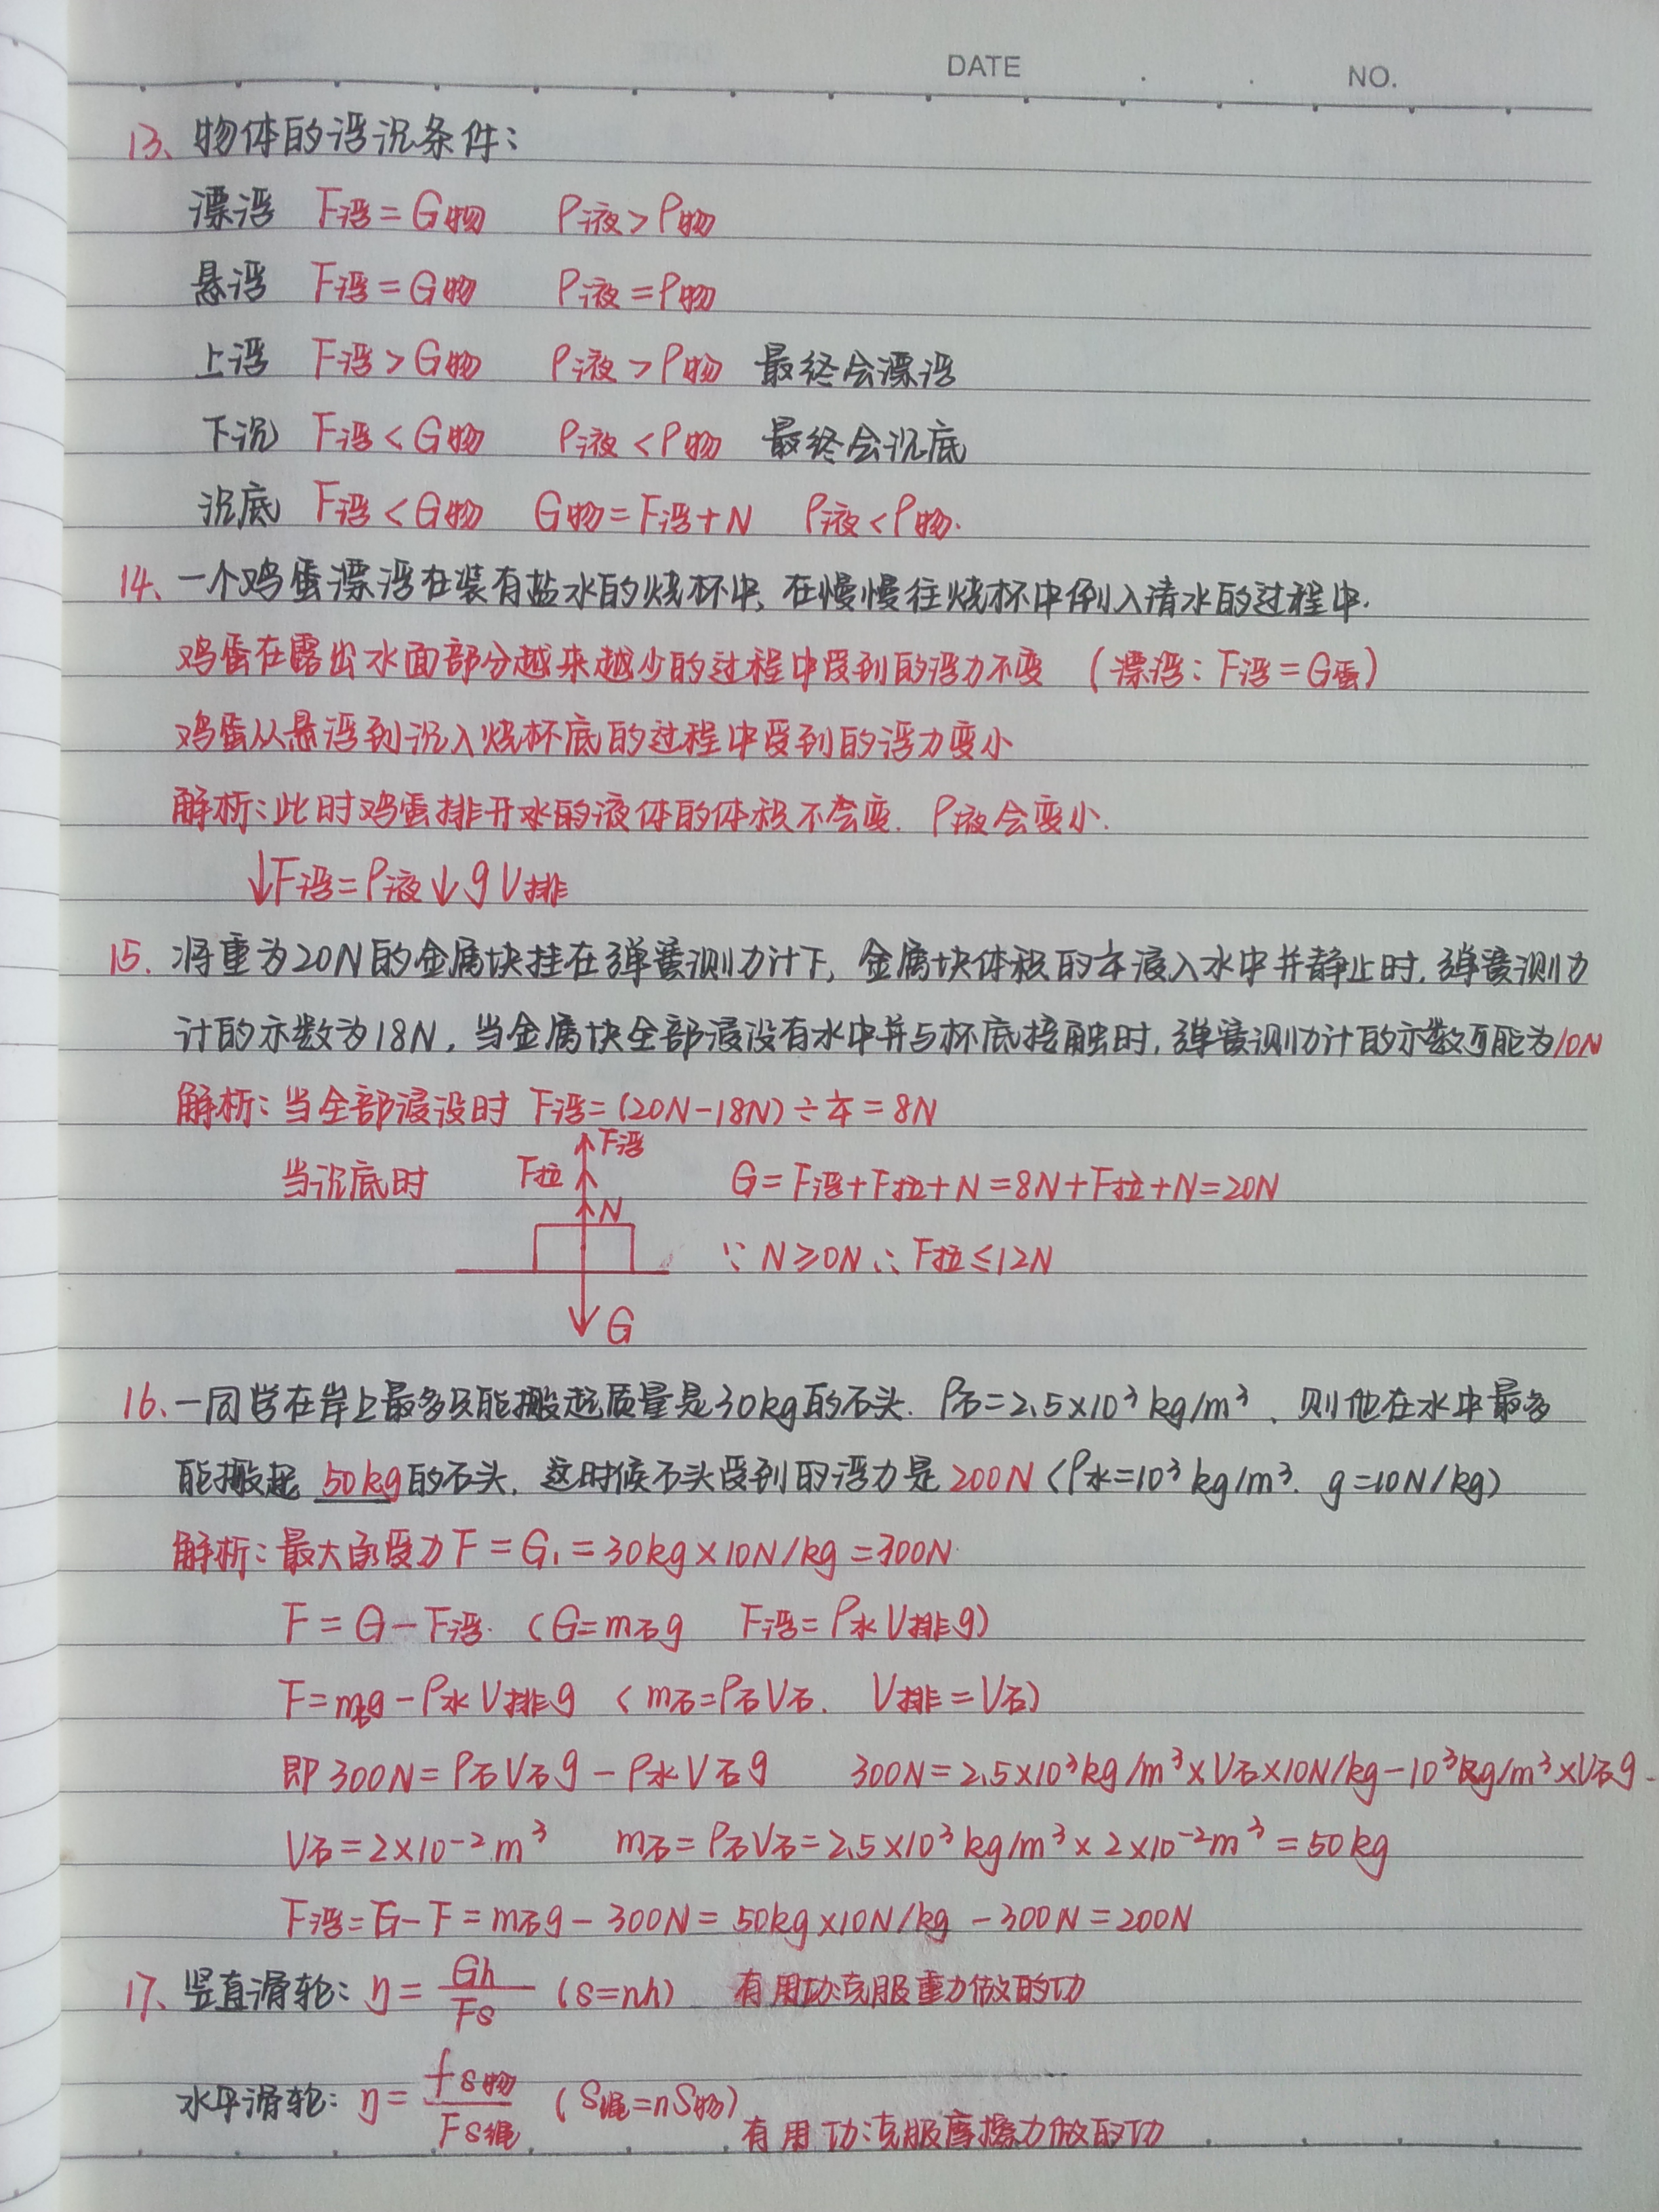 DATE . . NO.
13、物体的浮沉条件：
漂浮 F浮=G物 ρ液>ρ物
悬浮 F浮=G物 ρ液=ρ物
上浮 F浮>G物 ρ液>ρ物 最终会漂浮
下沉 F浮<G物 ρ液<ρ物 最终会沉底
沉底 F浮<G物 G物=F浮+N ρ液<ρ物.
14、一个鸡蛋漂浮在装有盐水的烧杯中，在慢慢往烧杯中倒入清水的过程中.
鸡蛋在露出水面部分越来越少的过程中受到的浮力不变 (漂浮：F浮=G蛋)
鸡蛋从悬浮到沉入烧杯底的过程中受到的浮力变小
解析：此时鸡蛋排开水的液体的体积不会变. ρ液会变小.
↓F浮=ρ液↓gV排
15. 将重为20N的金属块挂在弹簧测力计下，金属块体积的¼浸入水中并静止时，弹簧测力
计的示数为18N，当金属块全部浸没有水中并与杯底接触时，弹簧测力计的示数可能为10N
解析：当全部浸没时 F浮=(20N-18N)÷¼=8N
F浮
当沉底时 F拉 G=F浮+F拉+N=8N+F拉+N=20N
N
∵N≥0N ∴F拉≤12N
G
16、一同学在岸上最多只能搬起质量是30kg的石头. ρ石=2.5×10³kg/m³，则他在水中最多
能搬起 50kg的石头，这时候石头受到的浮力是200N (ρ水=10³kg/m³. g=10N/kg)
解析：最大承受力F=G₁=30kg×10N/kg=300N
F=G-F浮. (G=m石g F浮=ρ水V排g)
F=m石g-ρ水V排g (m石=ρ石V石. V排=V石)
即300N=ρ石V石g-ρ水V石g 300N=2.5×10³kg/m³×V石×10N/kg-10³kg/m³×V石g
V石=2×10⁻²m³ m石=ρ石V石=2.5×10³kg/m³×2×10⁻²m³=50kg
F浮=G-F=m石g-300N=50kg×10N/kg-300N=200N
17、竖直滑轮：η=Gh/Fs (s=nh) 有用功：克服重力做的功
水平滑轮：η=fs物/Fs绳 (S绳=nS物) 有用功：克服摩擦力做的功